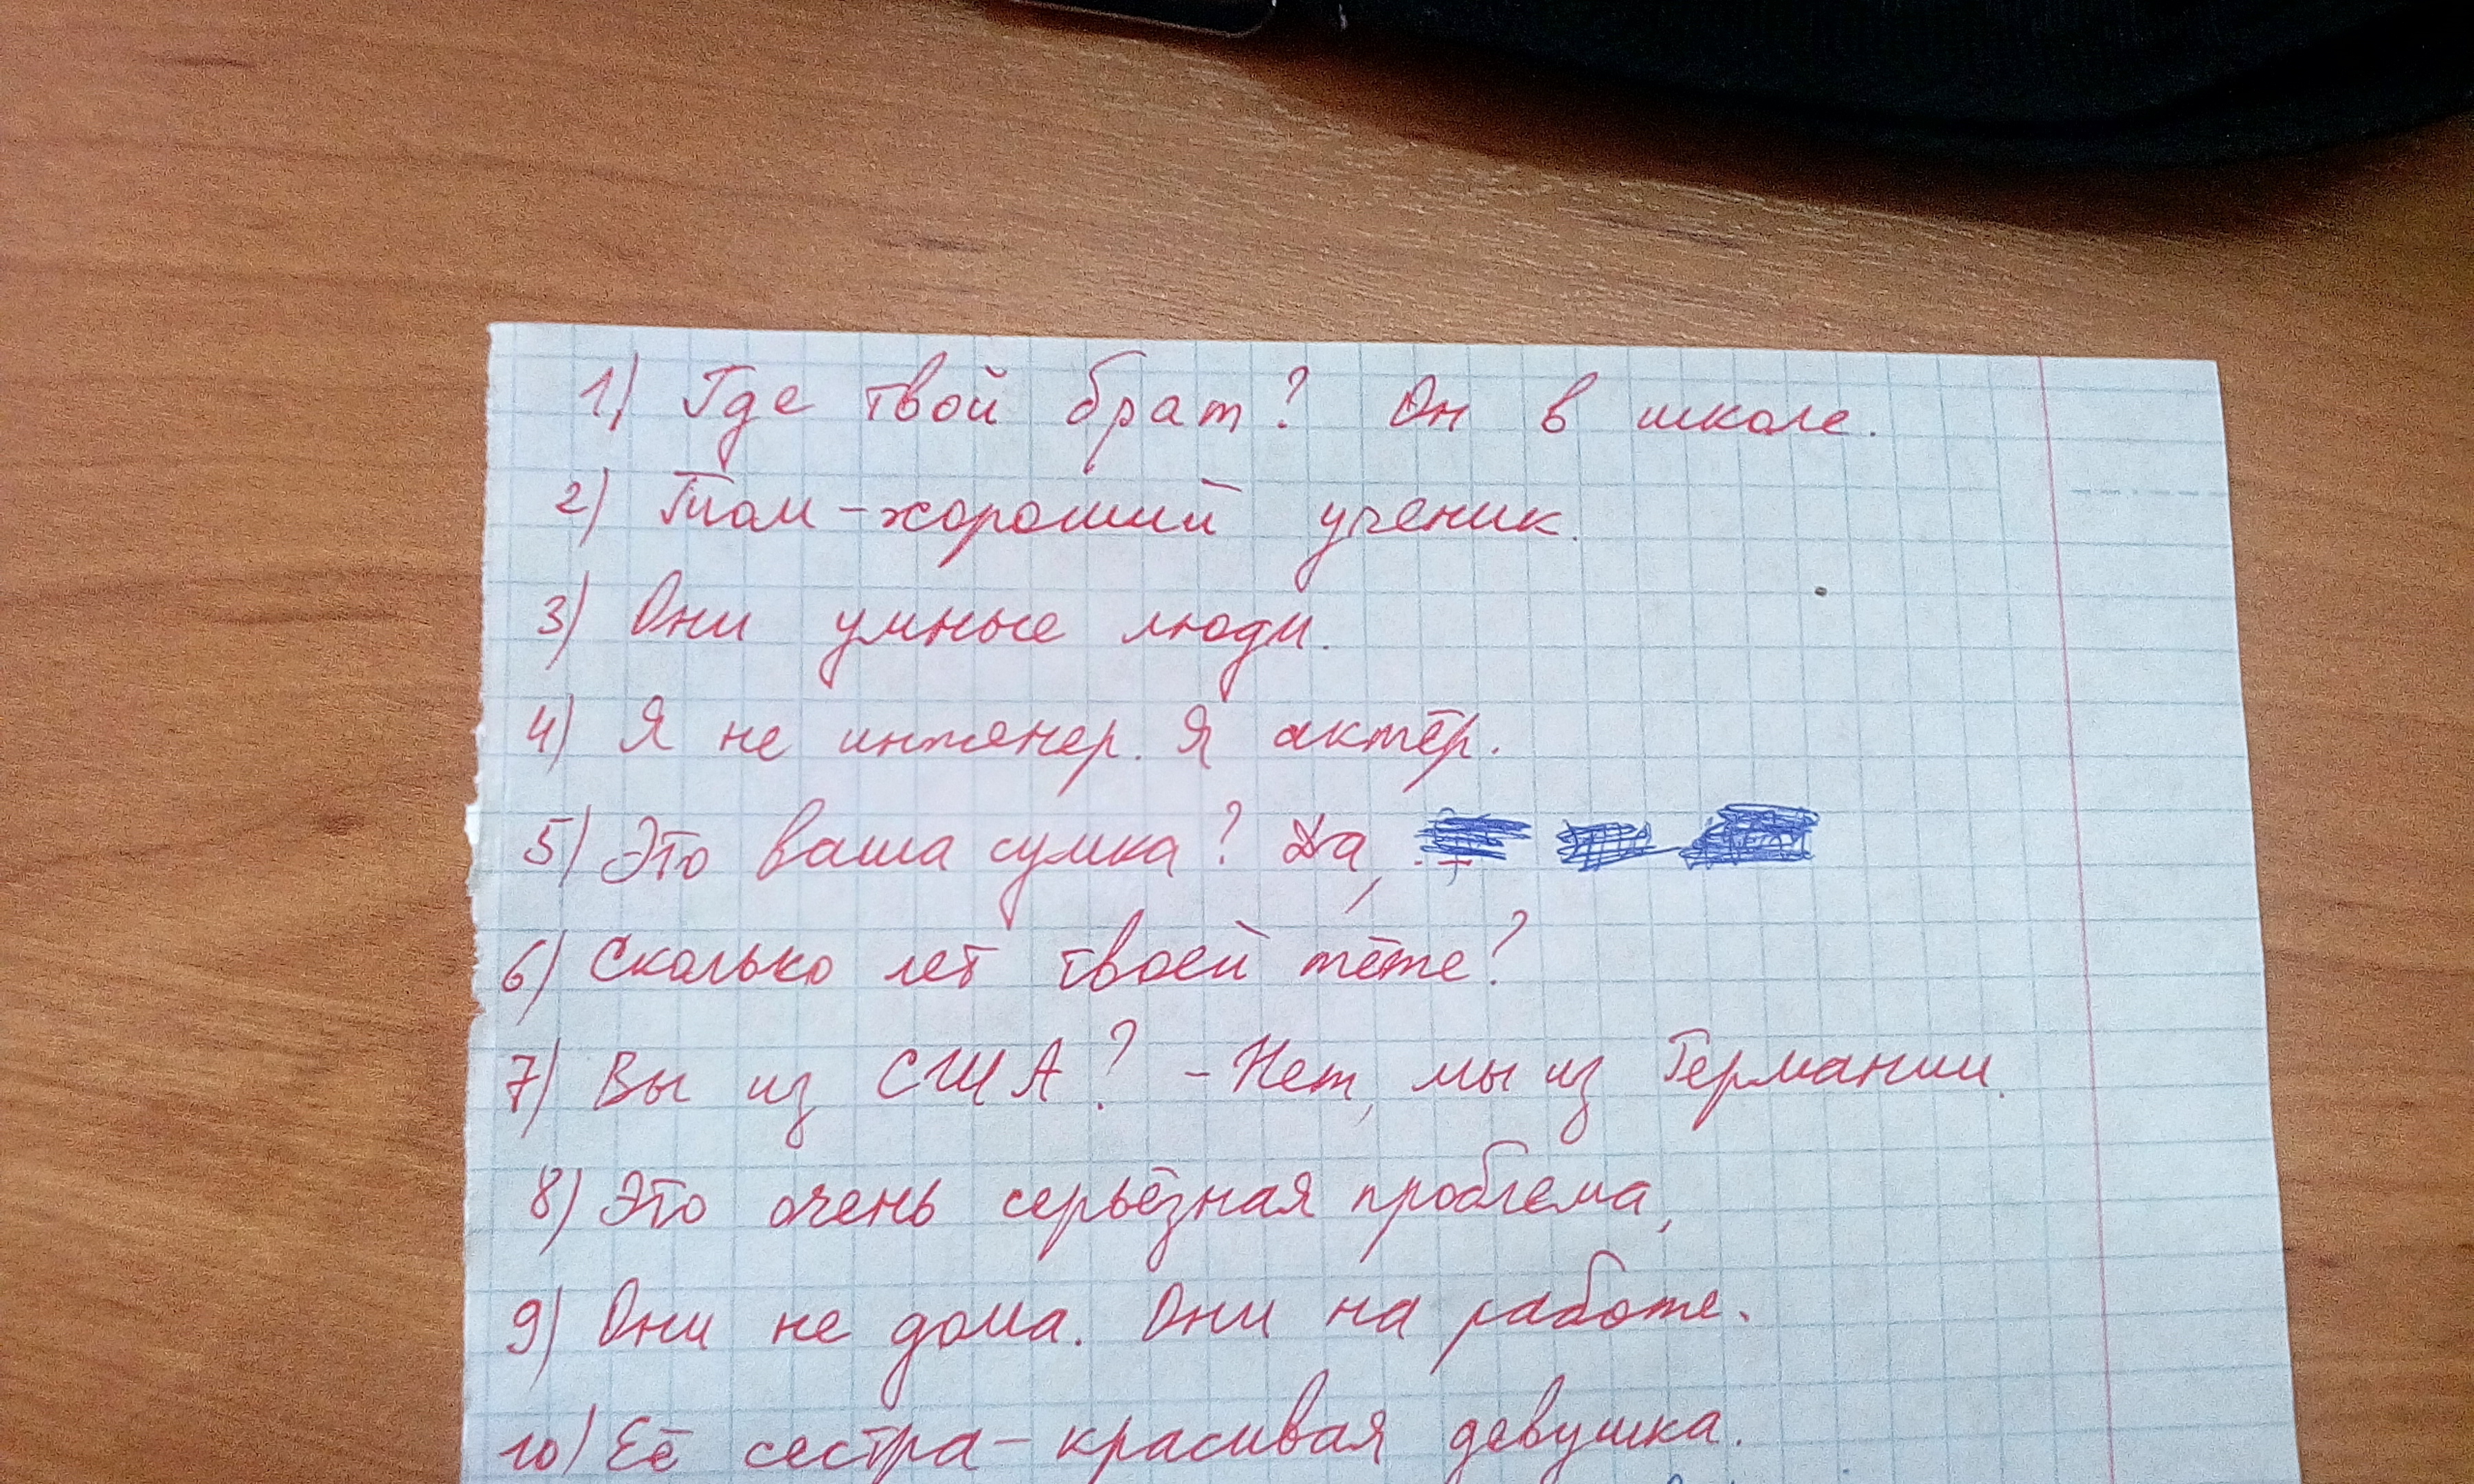 1) Где твой брат? Он в школе.
2) Том - хороший ученик.
3) Они умные люди.
4) Я не инженер. Я актёр.
5) Это ваша сумка? Да,
6) Сколько лет твоей тёте?
7) Вы из США? - Нет, мы из Германии.
8) Это очень серьёзная проблема,
9) Они не дома. Они на работе.
10) Её сестра - красивая девушка.